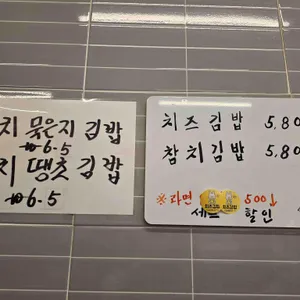 치 묵은지 김밥
₩6.5
치 땡초 김밥
₩6.5
치즈김밥 5,80
참치김밥 5,80
※라면 500↓
세트 할인